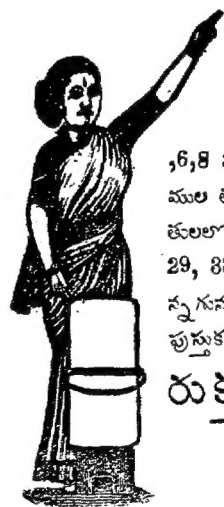 ,6,8
ముల
తులలో
29, 3
న్న గున
పుస్తక
రుక